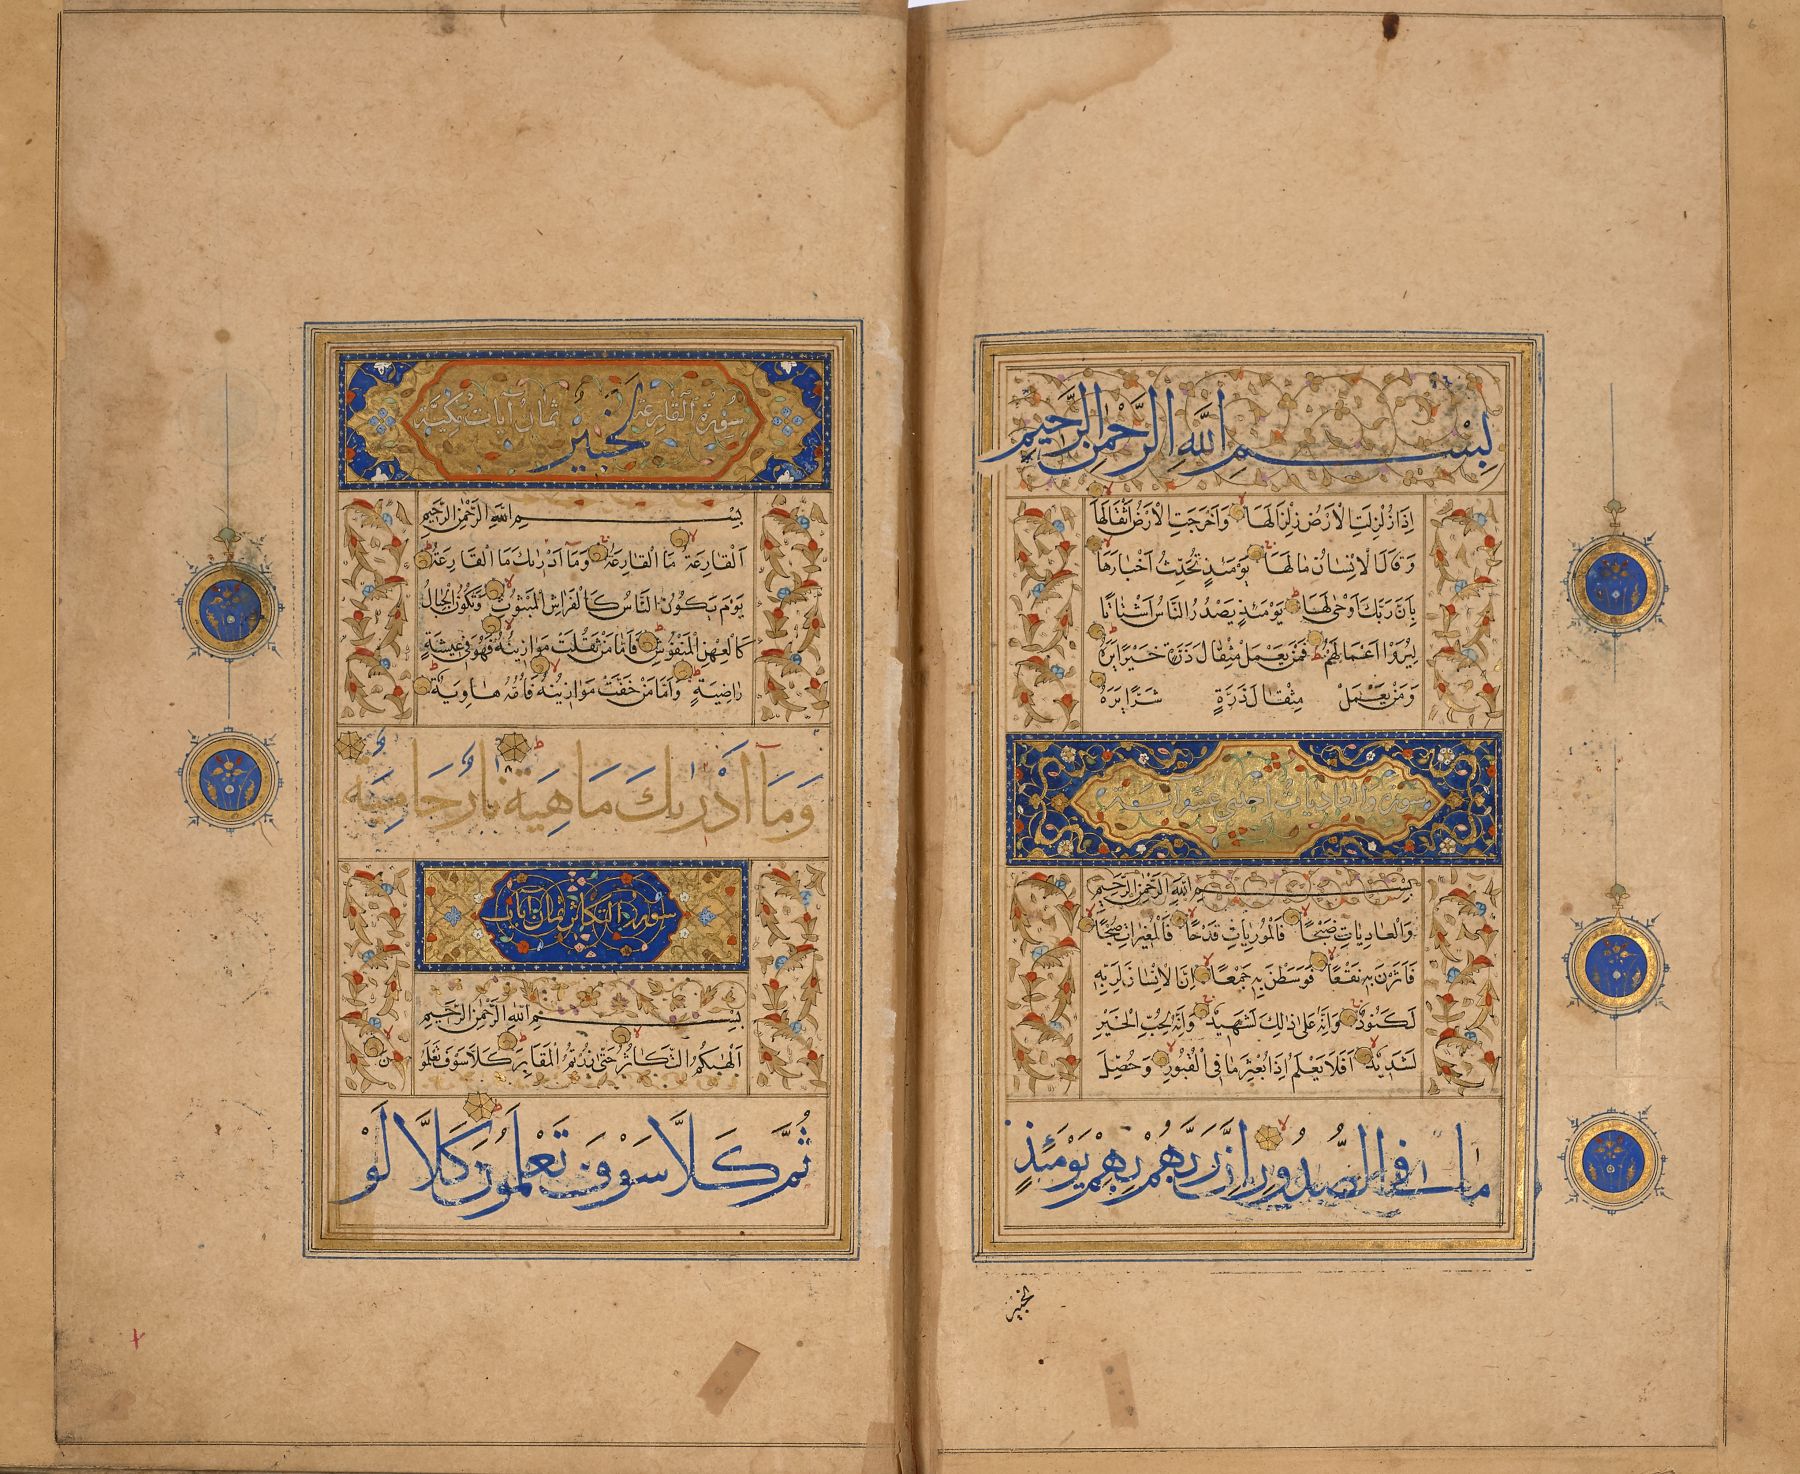 بِسْمِ اللَّهِ الرَّحْمَٰنِ الرَّحِيمِ
اِذَا زُلْزِلَتِ الْاَرْضُ زِلْزَالَهَا وَاَخْرَجَتِ الْاَرْضُ اَثْقَالَهَا
وَقَالَ الْاِنْسَانُ مَا لَهَا يَوْمَئِذٍ تُحَدِّثُ اَخْبَارَهَا
بِاَنَّ رَبَّكَ اَوْحٰى لَهَا يَوْمَئِذٍ يَصْدُرُ النَّاسُ اَشْتَاتًا
لِيُرَوْا اَعْمَالَهُمْ فَمَنْ يَعْمَلْ مِثْقَالَ ذَرَّةٍ خَيْرًا يَرَهُ
وَمَنْ يَعْمَلْ مِثْقَالَ ذَرَّةٍ شَرًّا يَرَهُ
سورة والعاديات احدى عشر اية
بِسْمِ اللهِ الرَّحْمٰنِ الرَّحِيمِ
وَالْعَادِيَاتِ ضَبْحًا فَالْمُورِيَاتِ قَدْحًا فَالْمُغِيرَاتِ صُبْحًا
فَاَثَرْنَ بِهِ نَقْعًا فَوَسَطْنَ بِهِ جَمْعًا اِنَّ الْاِنْسَانَ لِرَبِّهِ
لَكَنُودٌ وَاِنَّهُ عَلٰى ذٰلِكَ لَشَهِيدٌ وَاِنَّهُ لِحُبِّ الْخَيْرِ
لَشَدِيدٌ اَفَلَا يَعْلَمُ اِذَا بُعْثِرَ مَا فِي الْقُبُورِ وَحُصِّلَ
مَا فِي الصُّدُورِ اِنَّ رَبَّهُمْ بِهِمْ يَوْمَئِذٍ
لخبير
لَخَبِيرٌ
سورة القارعة ثمان آيات مكية
بِسْمِ اللهِ الرَّحْمٰنِ الرَّحِيمِ
اَلْقَارِعَةُ مَا الْقَارِعَةُ وَمَآ اَدْرٰىكَ مَا الْقَارِعَةُ
يَوْمَ يَكُونُ النَّاسُ كَالْفَرَاشِ الْمَبْثُوثِ وَتَكُونُ الْجِبَالُ
كَالْعِهْنِ الْمَنْفُوشِ فَاَمَّا مَنْ ثَقُلَتْ مَوَازِينُهُ فَهُوَ فِي عِيشَةٍ
رَاضِيَةٍ وَاَمَّا مَنْ خَفَّتْ مَوَازِينُهُ فَاُمُّهُ هَاوِيَةٌ
وَمَآ اَدْرٰىكَ مَا هِيَهْ نَارٌ حَامِيَةٌ
سورة التكاثر ثمان آيات
بِسْمِ اللهِ الرَّحْمٰنِ الرَّحِيمِ
اَلْهٰىكُمُ التَّكَاثُرُ حَتّٰى زُرْتُمُ الْمَقَابِرَ كَلَّا سَوْفَ تَعْلَمُونَ
ثُمَّ كَلَّا سَوْفَ تَعْلَمُونَ كَلَّا لَوْ